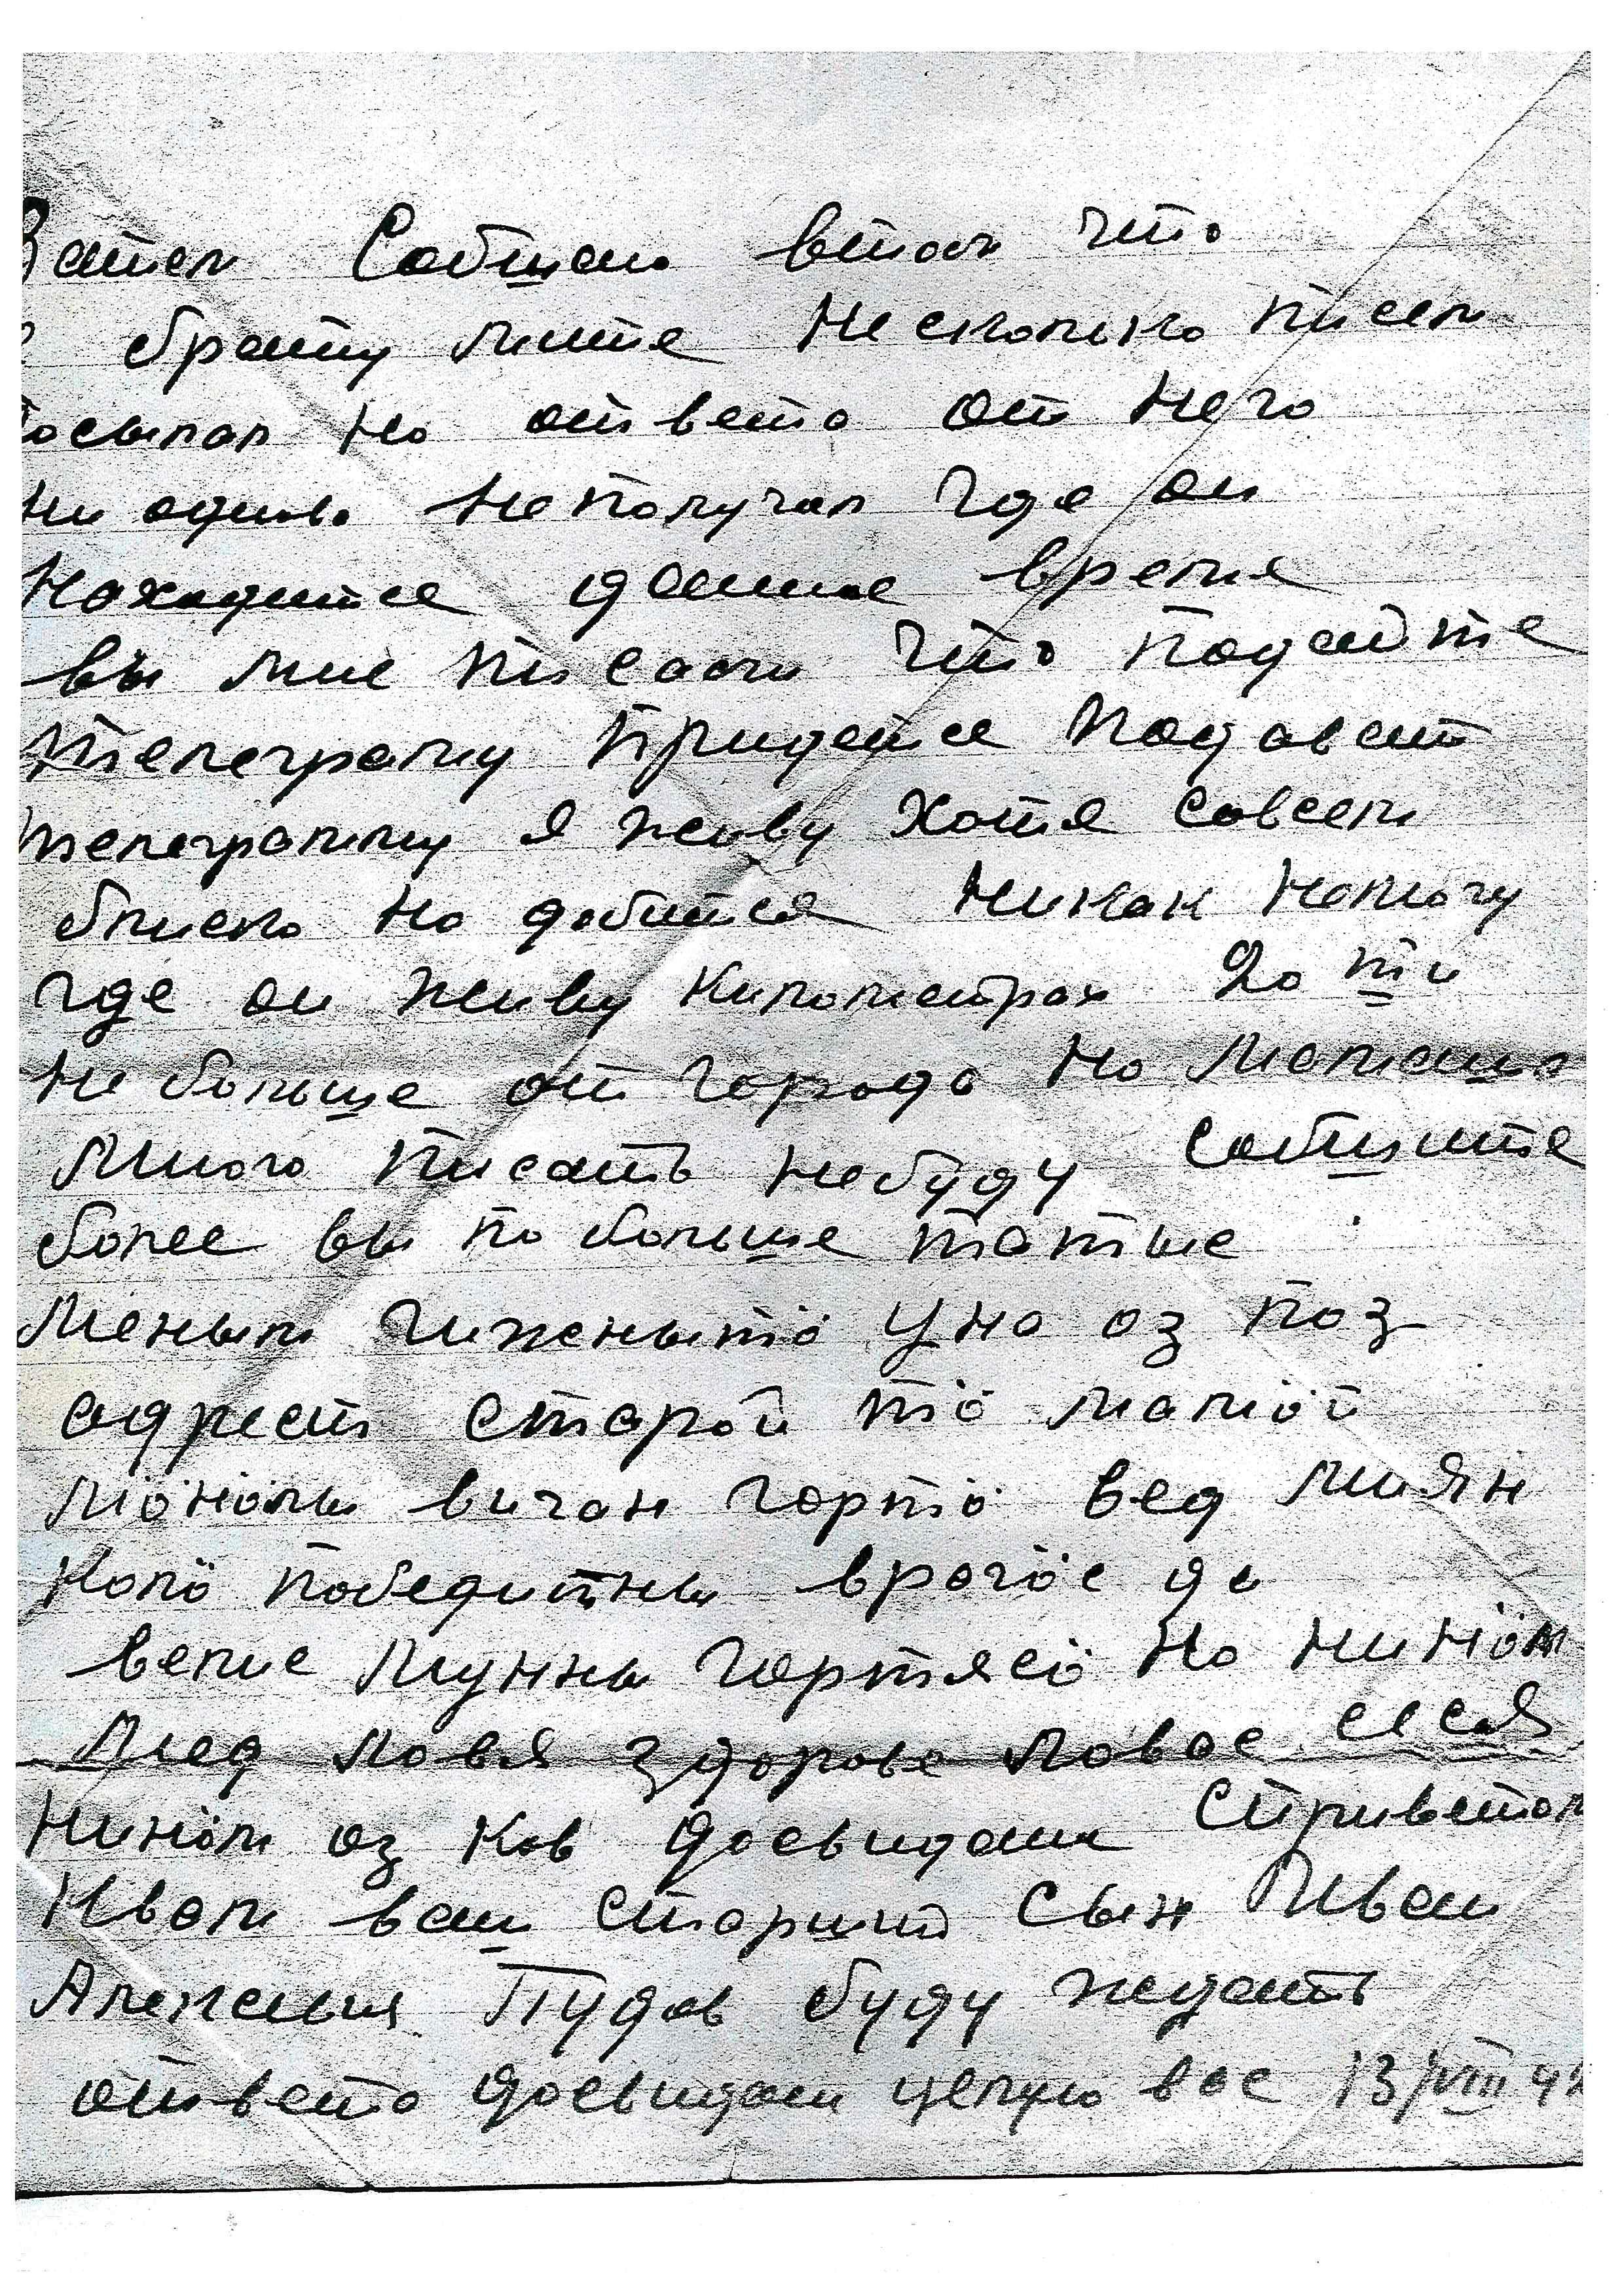 Затем Сообщаю втом что
я брату мите Несколько писем
Посылал Но ответа От Него
Ни одново Неполучал Где он
Находится данное время
вы мне писали Что подайте
Телеграму Придется Подават
телеграмму я живу Хотя Совсем
блиско Но добится Никак Немогу
где он живу Километрах 20 ти
Не больше от Города Но Мамаша
Много Писать Небуду Сообщите
более вы по больше татше
Меным Гижнытö Уна оз поз
адрест старöй тö мамöй
мöнöлы виччан Гортö вед Миян
Колö победитны врагöс да
велис Мунны Гортясö Но Нинöм
Мед ловя здоровье ловас сеся
Нинöм оз Ков Досвидани Сприветом
Квам ваш Старший Сын Иван
Алексевич Пудов буду ждать
ответа Досвидани целую вас 13/VIII 42